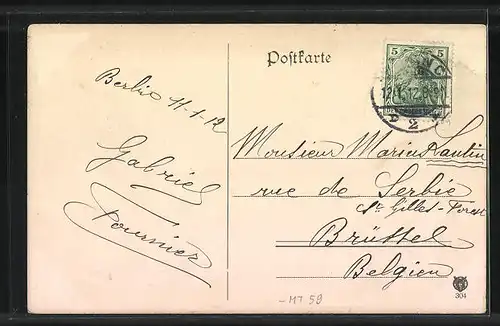 Postkarte
5 5
12.1.12.
2
Berlin 11-1-12
Gabriel
Fournier
Monsieur Marius Lautin
rue de Serbie
St. Gilles-Forest
Brüssel
Belgien
304
-MT 59